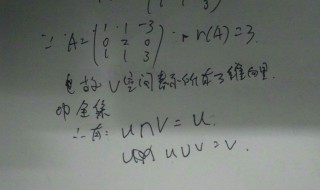 ∵ A = (1 1 -3
0 2 0
1 1 3) ∴ r(A)=3.
也故 V 空间表示所有3维向量
即全体
∴有: U∩V = U.
U∪V = V.